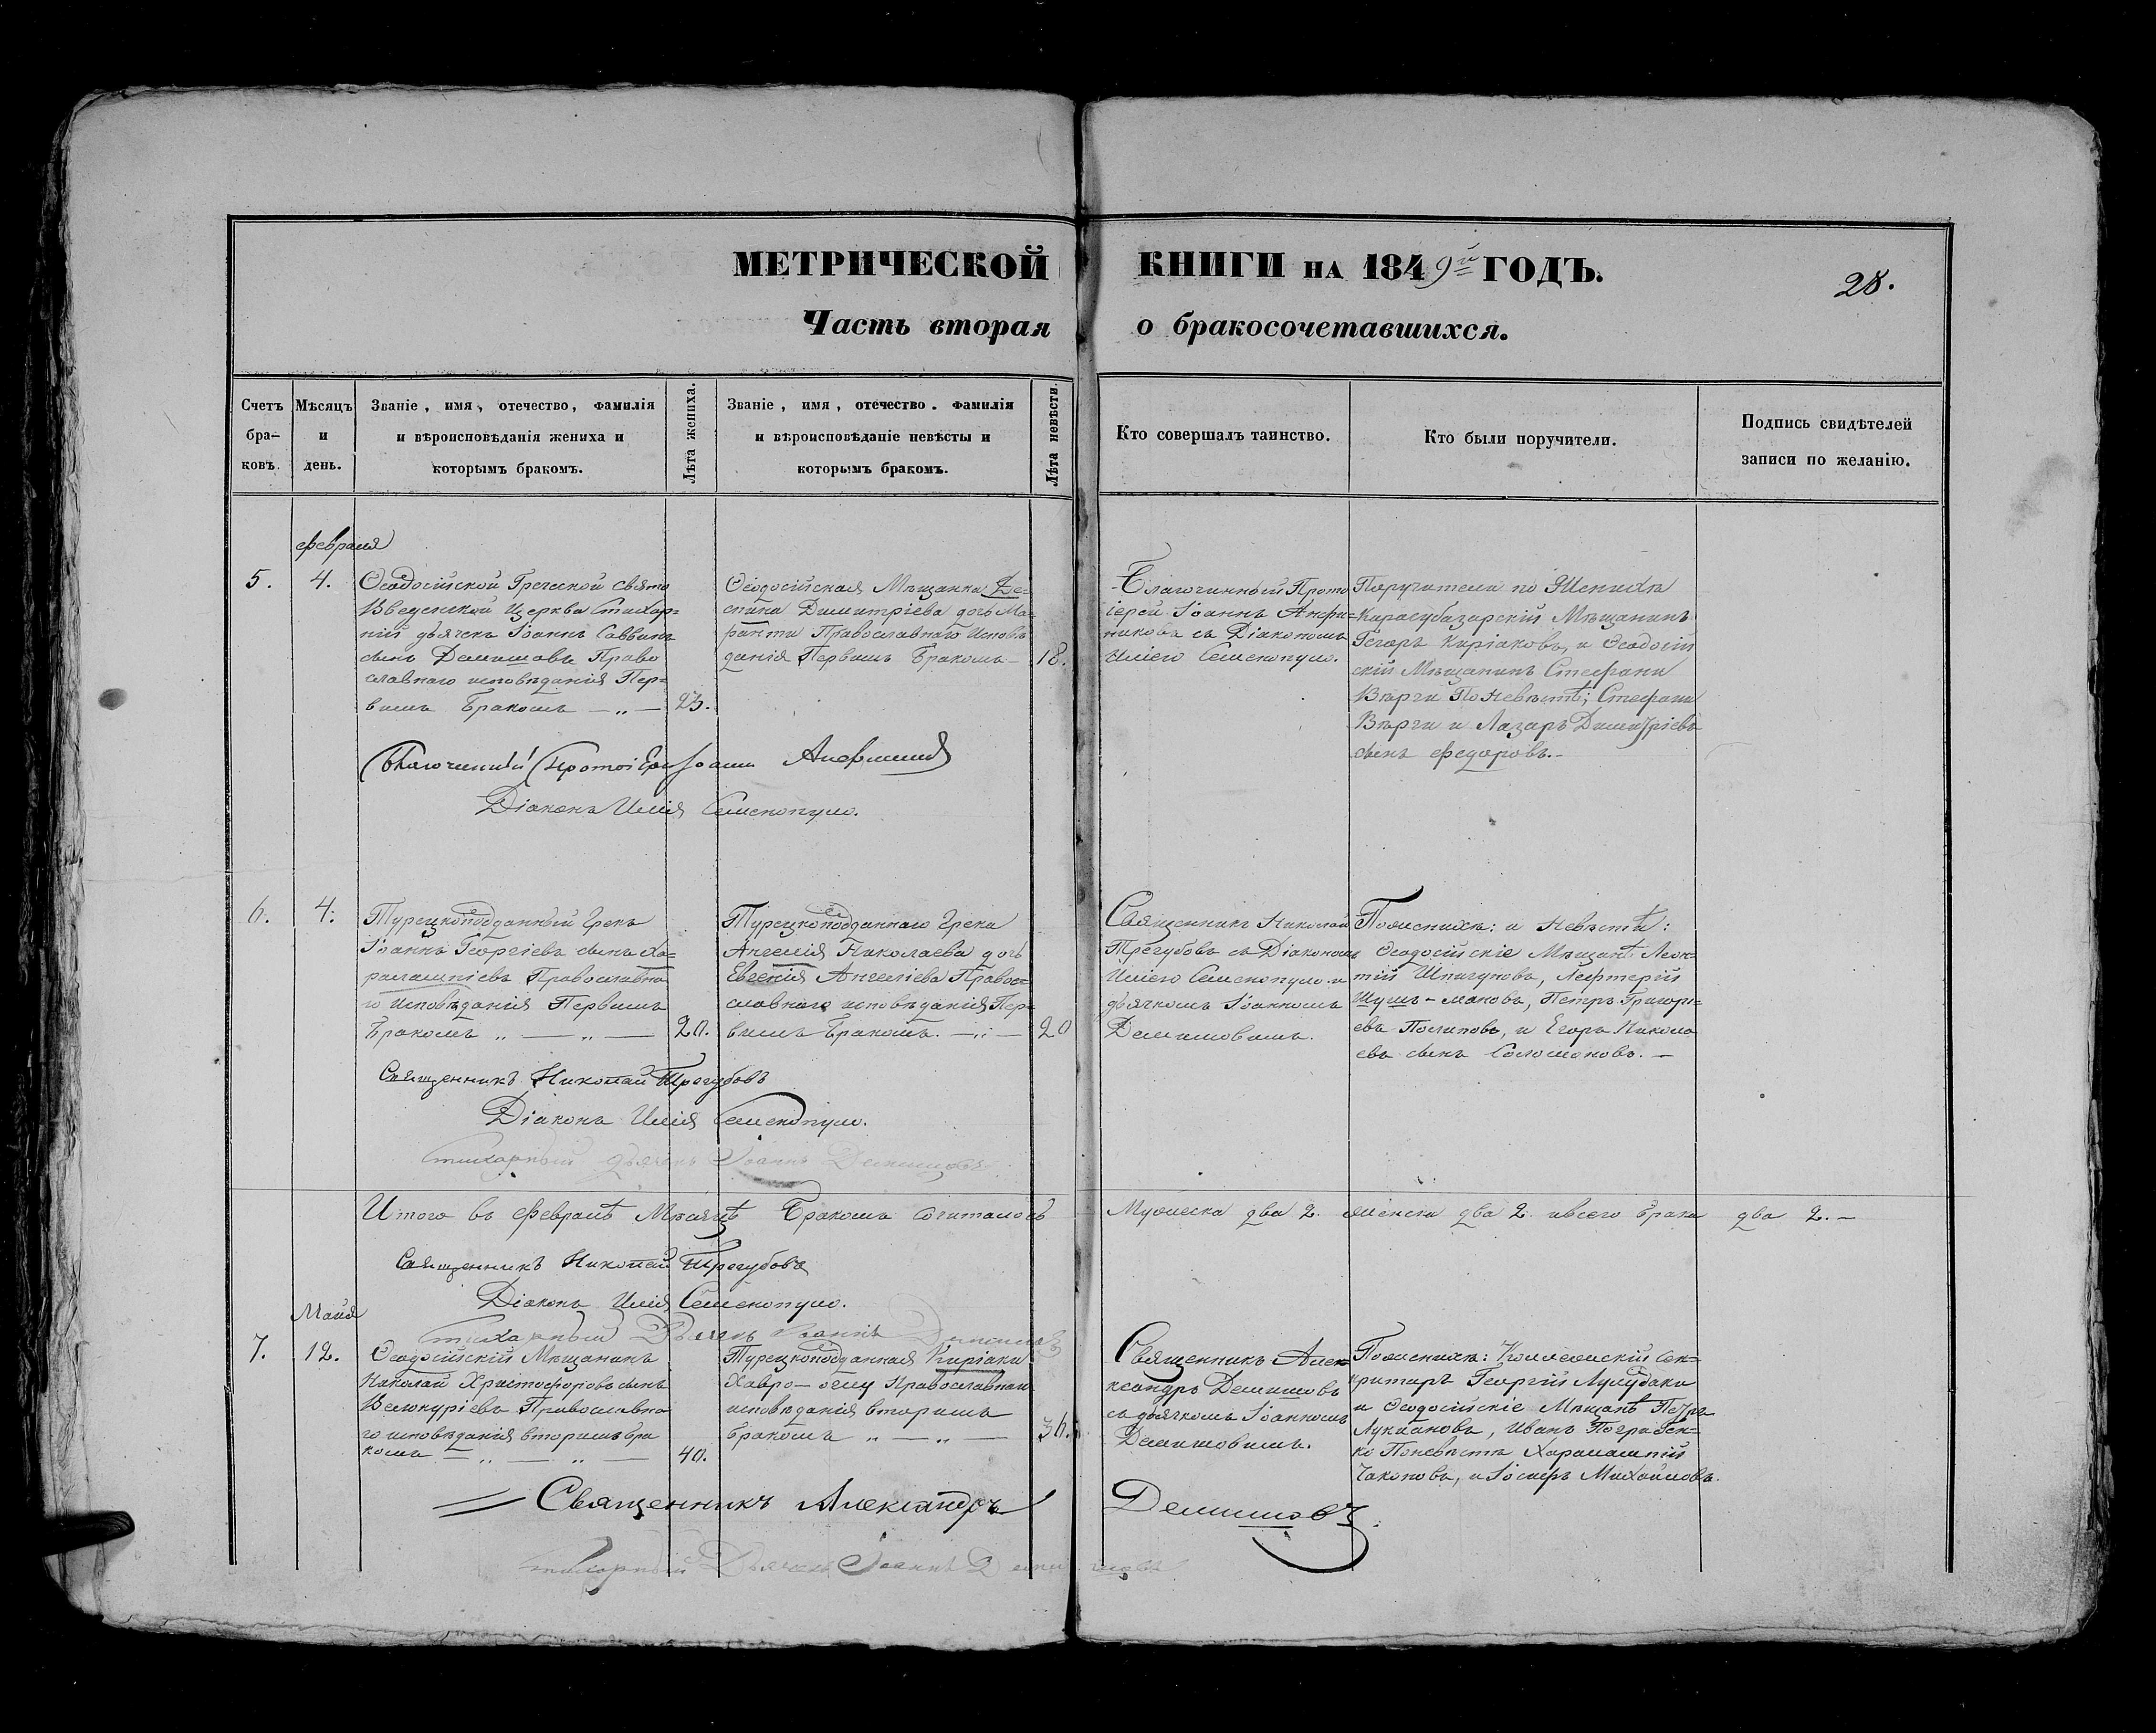 МЕТРИЧЕСКОЙ КНИГИ НА 1849й ГОДЪ.
28.
Часть вторая о бракосочетавшихся.
Счетъ бра-ковъ.
Мѣсяцъ и день.
Званіе, имя, отечество, фамилія
и вѣроисповѣданія жениха и
которымъ бракомъ.
Лѣта жениха.
Званіе, имя, отечество. фамилія
и вѣроисповѣданіе невѣсты и
которымъ бракомъ.
Лѣта невѣсти.
Кто совершалъ таинство.
Кто были поручители.
Подпись свидѣтелей
записи по желанію.
февраля
5.
4.
Ѳеодосійской Греческой Свято
Введенской Церкви Стихар=
ній дьячекъ Іоаннъ Саввинъ
сынъ Демишовъ Право
славнаго исповѣданія Пер=
вымъ Бракомъ — „ —
23.
Ѳеодосійская Мѣщанка Де=
спина Димитріева дочь Ма=
ранти Православнаго Исповѣ
данія Первымъ Бракомъ —
18.
Благочинный Прото
іерей Іоаннъ
съ Діакономъ
Иліею Семенопуло.
Поручители по Женихѣ
Карасубазарскій Мѣщанинъ
Егоръ Киріаковъ, и Ѳеодосій
скій Мѣщанинъ Стефани
Вѣрги По Невѣстѣ; Стефани
Вѣрги и Лазарь Димитріевъ
сынъ Федоровъ. –
Благочинный Протоіерей Іоаннъ
Діаконъ Илія Семенопуло.
6.
4.
Турецкоподданный Грекъ
Іоаннъ Георгіевъ сынъ Ха=
ралампіевъ Православна
го Исповѣданія Первымъ
Бракомъ „ — „ —
20.
Турецкоподданнаго Грека
Ангелія Николаева дочь
Евгенія Ангеліева Право=
славнаго исповѣданія Пер=
вымъ Бракомъ. — „ —
20
Священникъ Николай
Трегубовъ съ Діакономъ
Иліею Семенопуло и
дьячкомъ Іоанномъ
Демишовымъ.
Пожениху: и Невѣстѣ:
Ѳеодосійскіе Мѣщанѣ Леон=
тій Лефтерій
Петръ Григорі=
евъ и Егоръ Никола
евъ сынъ Соломоновъ. —
Священникъ Николай Трегубовъ
Діаконъ Илія Семенопуло.
Стихарный дьячекъ Іоаннъ Демишовъ
Итого въ Февралѣ Мѣсяцѣ Бракомъ сочиталось Мужеска два 2. женска два 2. ивсего брака два 2. —
Священникъ Николай Трегубовъ
Діаконъ Илія Семенопуло.
Стихарный Дьячекъ Іоаннъ Демишовъ
Майя
7.
12.
Ѳеодосійскій Мѣщанинъ
Николай Христофоровъ сынъ
Православна
го исповѣданія вторымъ бра
комъ — „ — „ —
40.
Турецкоподданная Киріаки
Хавро — Православнаго
исповѣданія вторымъ
бракомъ „ — „ —
36.
Священникъ Алек=
ксандръ Демишовъ
съ дьячкомъ Іоанномъ
Демишовымъ.
Пожениху: Коллежскій Сек=
критарь Георгій
и Ѳеодосійскіе Мѣщанѣ Петръ
Лукіановъ, Иванъ
Поневѣстѣ Харалампій
Чакановъ, и Іосифъ Михайловъ.
Священникъ Александръ Демишовъ
Стихарный Дьячекъ Іоаннъ Демишовъ